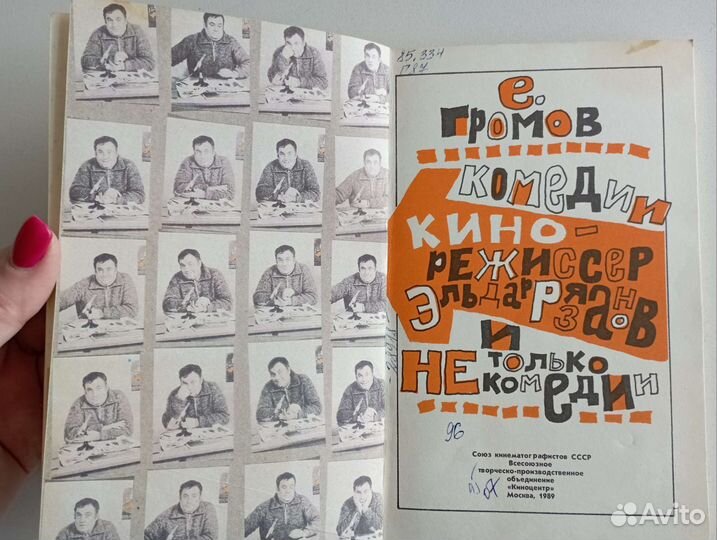 85.334
Г87
е.
громов
комедии
кино-
режиссер
Эльдар Рязанов
и
не только
комедии
96
Союз кинематографистов СССР
Всесоюзное
творческо-производственное
объединение
«Киноцентр»
Москва, 1989
Avito